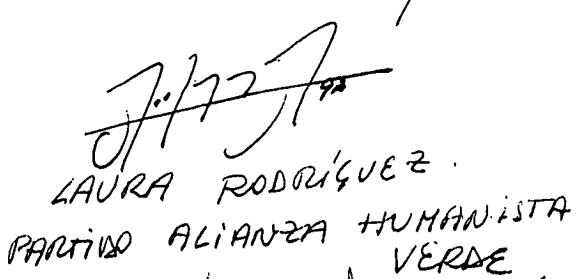 LAURA RODRÍGUEZ.
PARTIDO ALIANZA HUMANISTA
VERDE